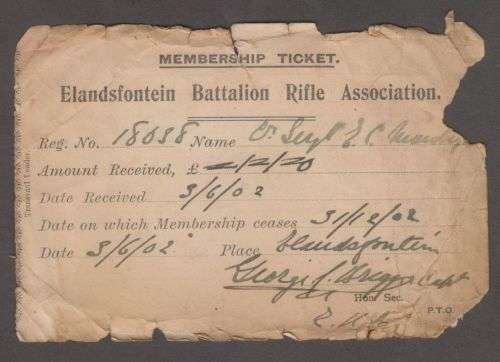 MEMBERSHIP TICKET.
Elandsfontein Battalion Rifle Association.
Reg. No. 18038 Name E. C.
Amount Received, £
Date Received 3/6/02
Date on which Membership ceases 31/12/02
Date 3/6/02 Place Elandsfontein
George Capt
Hon: Sec.
P.T.O.